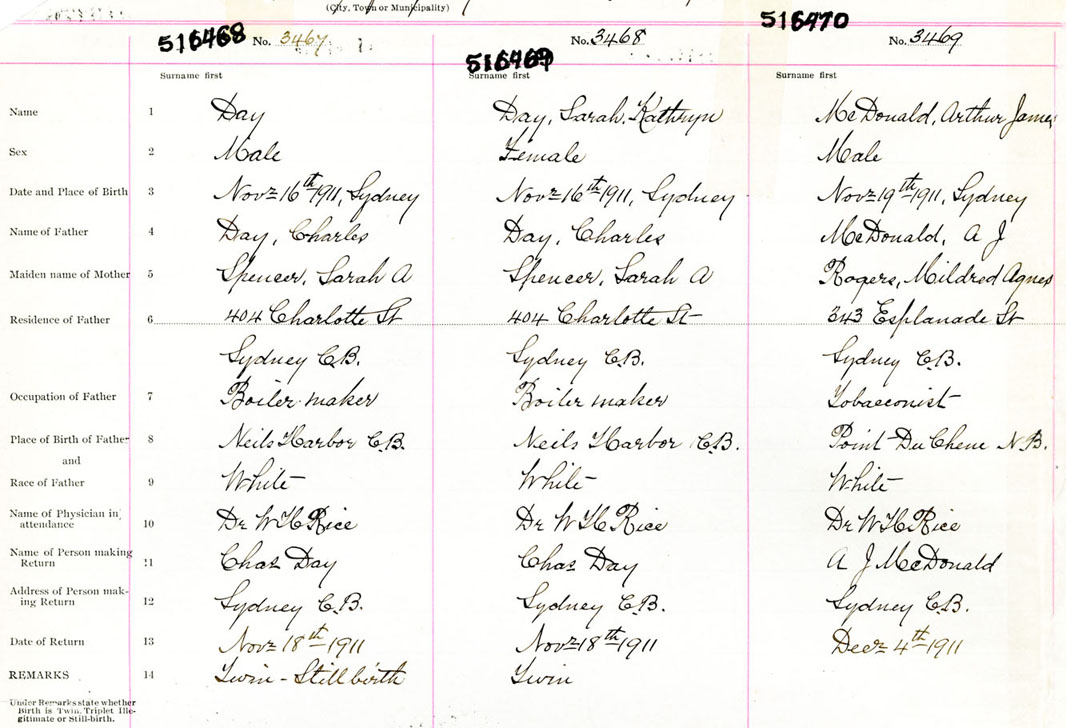 (City, Town or Municipality)
516468 No. 3467 516469 No. 3468 516470 No. 3469
Surname first Surname first Surname first
Name 1 Day Day, Sarah Kathryn McDonald, Arthur James
Sex 2 Male Female Male
Date and Place of Birth 3 Novr 16th 1911, Sydney Novr 16th 1911, Sydney Novr 19th 1911, Sydney
Name of Father 4 Day, Charles Day, Charles McDonald, A J
Maiden name of Mother 5 Spencer, Sarah A Spencer, Sarah A Rogers, Mildred Agnes
Residence of Father 6 404 Charlotte St 404 Charlotte St 343 Esplanade St
Sydney C.B. Sydney C.B. Sydney C.B.
Occupation of Father 7 Boiler maker Boiler maker Tobacconist
Place of Birth of Father 8 Neils Harbor C.B. Neils Harbor C.B. Point Du Chene N.B.
and
Race of Father 9 White White White
Name of Physician in attendance 10 Dr W H Rice Dr W H Rice Dr W H Rice
Name of Person making Return 11 Chas Day Chas Day A J McDonald
Address of Person mak-ing Return 12 Sydney C.B. Sydney C.B. Sydney C.B.
Date of Return 13 Novr 18th 1911 Novr 18th 1911 Decr 4th 1911
REMARKS 14 Twin - Still birth Twin
Under Remarks state whether
Birth is Twin, Triplet Ille-
gitimate or Still-birth.